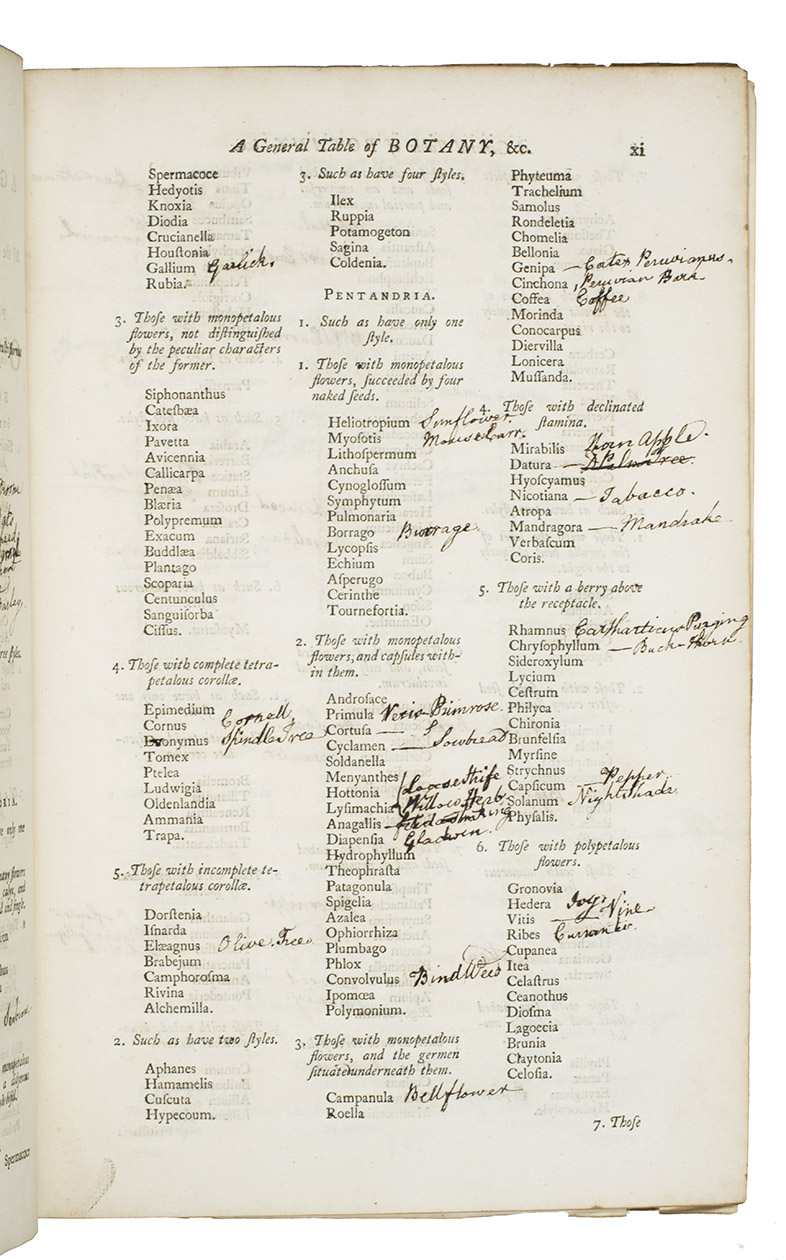 A General Table of BOTANY, &c.
xi
Spermacoce
Hedyotis
Knoxia
Diodia
Crucianella
Houſtonia
Gallium Garlick.
Rubia.
3. Thoſe with monopetalous
flowers, not diſtinguiſhed
by the peculiar characters
of the former.
Siphonanthus
Cateſbæa
Ixora
Pavetta
Avicennia
Callicarpa
Penæa
Blæria
Polypremum
Exacum
Buddlæa
Plantago
Scoparia
Centunculus
Sanguiſorba
Ciſſus.
4. Thoſe with complete tetra-
petalous corollæ.
Epimedium
Cornus Cornell,
Evonymus Spindle Tree
Tomex
Ptelea
Ludwigia
Oldenlandia
Ammania
Trapa.
5. Thoſe with incomplete te-
trapetalous corollæ.
Dorſtenia
Iſnarda
Elæagnus Olive. Tree
Brabejum
Camphoroſma
Rivina
Alchemilla.
2. Such as have two ſtyles.
Aphanes
Hamamelis
Cuſcuta
Hypecoum.
3. Such as have four ſtyles.
Ilex
Ruppia
Potamogeton
Sagina
Coldenia.
PENTANDRIA.
1. Such as have only one
ſtyle.
1. Thoſe with monopetalous
flowers, ſucceeded by four
naked ſeeds.
Heliotropium Sunflower.
Myoſotis Mouse Earr.
Lithoſpermum
Anchuſa
Cynogloſſum
Symphytum
Pulmonaria
Borrago Borrage
Lycopſis
Echium
Aſperugo
Cerinthe
Tournefortia.
2. Thoſe with monopetalous
flowers, and capſules with-
in them.
Androſace
Primula Veris Primrose
Cortuſa
Cyclamen — Sowbread
Soldanella
Menyanthes
Hottonia Loosestrife
Lyſimachia Willow Herb
Anagallis
Diapenſia Gladwin.
Hydrophyllum
Theophraſta
Patagonula
Spigelia
Azalea
Ophiorrhiza
Plumbago
Phlox
Convolvulus BindWeed
Ipomœa
Polymonium.
3. Thoſe with monopetalous
flowers, and the germen
ſituated underneath them.
Campanula Bellflower
Roella
Phyteuma
Trachelium
Samolus
Rondeletia
Chomelia
Bellonia
Genipa
Cinchona Peruvian Bark
Coffea Coffee
Morinda
Conocarpus
Diervilla
Lonicera
Muſſanda.
4. Thoſe with declinated
ſtamina.
Mirabilis Thorn Apple.
Datura —
Hyoſcyamus
Nicotiana — Tabacco.
Atropa
Mandragora — Mandrake
Verbaſcum
Coris.
5. Thoſe with a berry above
the receptacle.
Rhamnus Catharticus Purging
Chryſophyllum — Buck-thorn
Sideroxylum
Lycium
Ceſtrum
Philyca
Chironia
Brunfelſia
Myrſine
Strychnus
Capſicum — Pepper
Solanum Nightshade
Phyſalis.
6. Thoſe with polypetalous
flowers.
Gronovia
Hedera Ivy
Vitis — Vine
Ribes
Cupanea
Itea
Celaſtrus
Ceanothus
Dioſma
Lagoecia
Brunia
Claytonia
Celoſia.
7. Thoſe